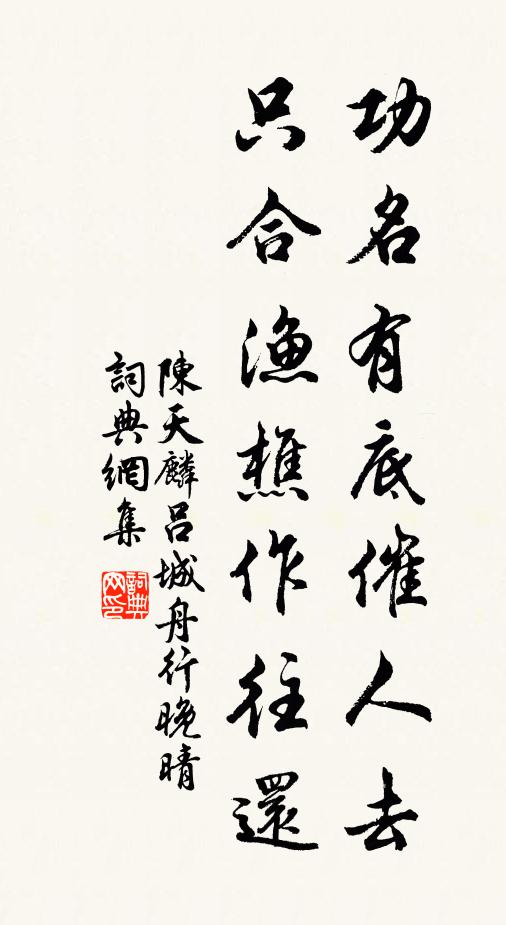 功名有底催人去
只合漁樵作往還
陳天麟呂城舟行晚晴
詞典網集
詞典网印